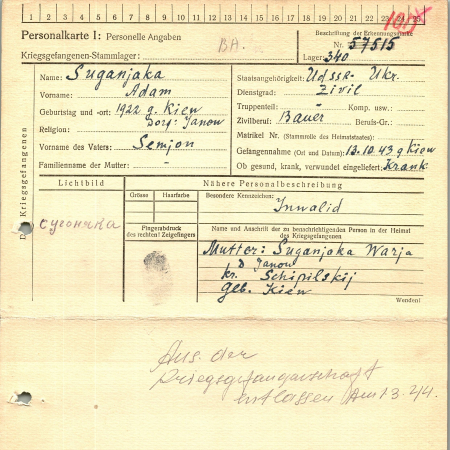 1 2 3 4 5 6 7 8 9 10 11 12 13 14 15 16 17 18 19 20 21 22 23 24 25
Personalkarte I: Personelle Angaben
BA.
Beschriftung der Erkennungsmarke
Nr. 57515
Kriegsgefangenen-Stammlager:
Lager: 340
Des Kriegsgefangenen
Name: Suganjaka
Vorname: Adam
Geburtstag und -ort: 1922 g. Kiew
Dorf: Janow
Religion:
Vorname des Vaters: Semjon
Familienname der Mutter: -
Staatsangehörigkeit: UdSSR Ukr.
Dienstgrad: Zivil
Truppenteil: - Komp. usw.:
Zivilberuf: Bauer Berufs-Gr.:
Matrikel Nr. (Stammrolle des Heimatstaates):
Gefangennahme (Ort und Datum): 13.10.43 g Kiew
Ob gesund, krank, verwundet eingeliefert: Krank
Lichtbild
Nähere Personalbeschreibung
Grösse
Haarfarbe
Besondere Kennzeichen:
Invalid
Fingerabdruck
des rechten! Zeigefingers
Name und Anschrift der zu benachrichtigenden Person in der Heimat
des Kriegsgefangenen
Mutter: Suganjaka Warja
D Janow
kr. Schipilskij
geb. Kiew
Wenden!
Aus der
Kriegsgefangenschaft
entlassen Am 1.3.44.